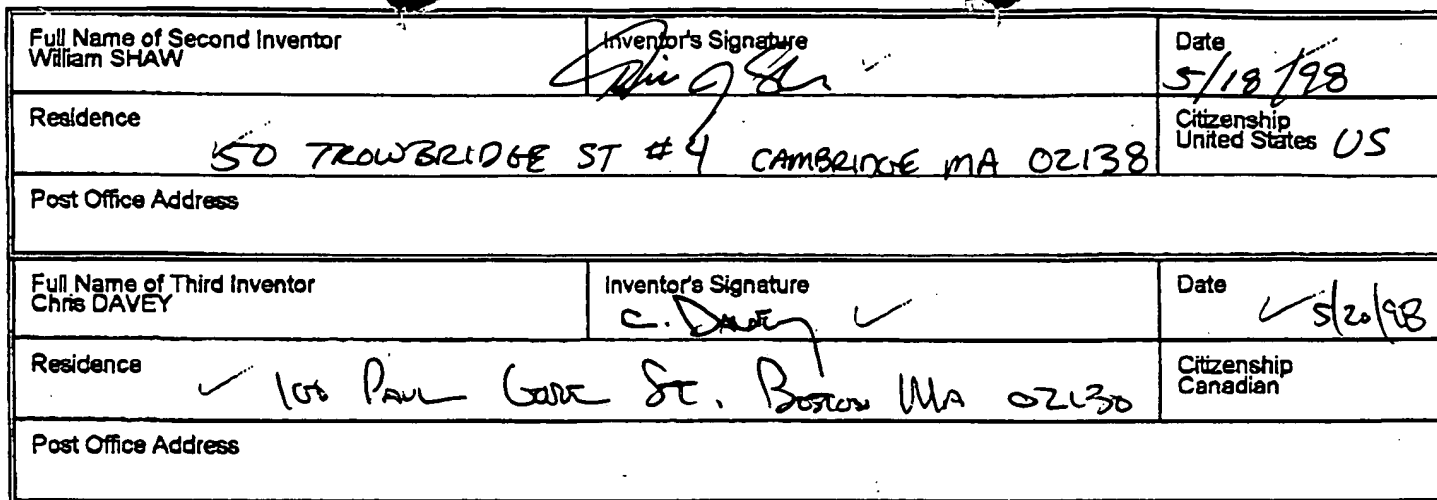 Full Name of Second Inventor
William SHAW
Inventor's Signature
Date
5/18/98
Residence
50 TROWBRIDGE ST #4 CAMBRIDGE MA 02138
Citizenship
United States US
Post Office Address
Full Name of Third Inventor
Chris DAVEY
Inventor's Signature
C. Davey
Date
5/20/98
Residence
Paul Gore St. Boston MA 02130
Citizenship
Canadian
Post Office Address